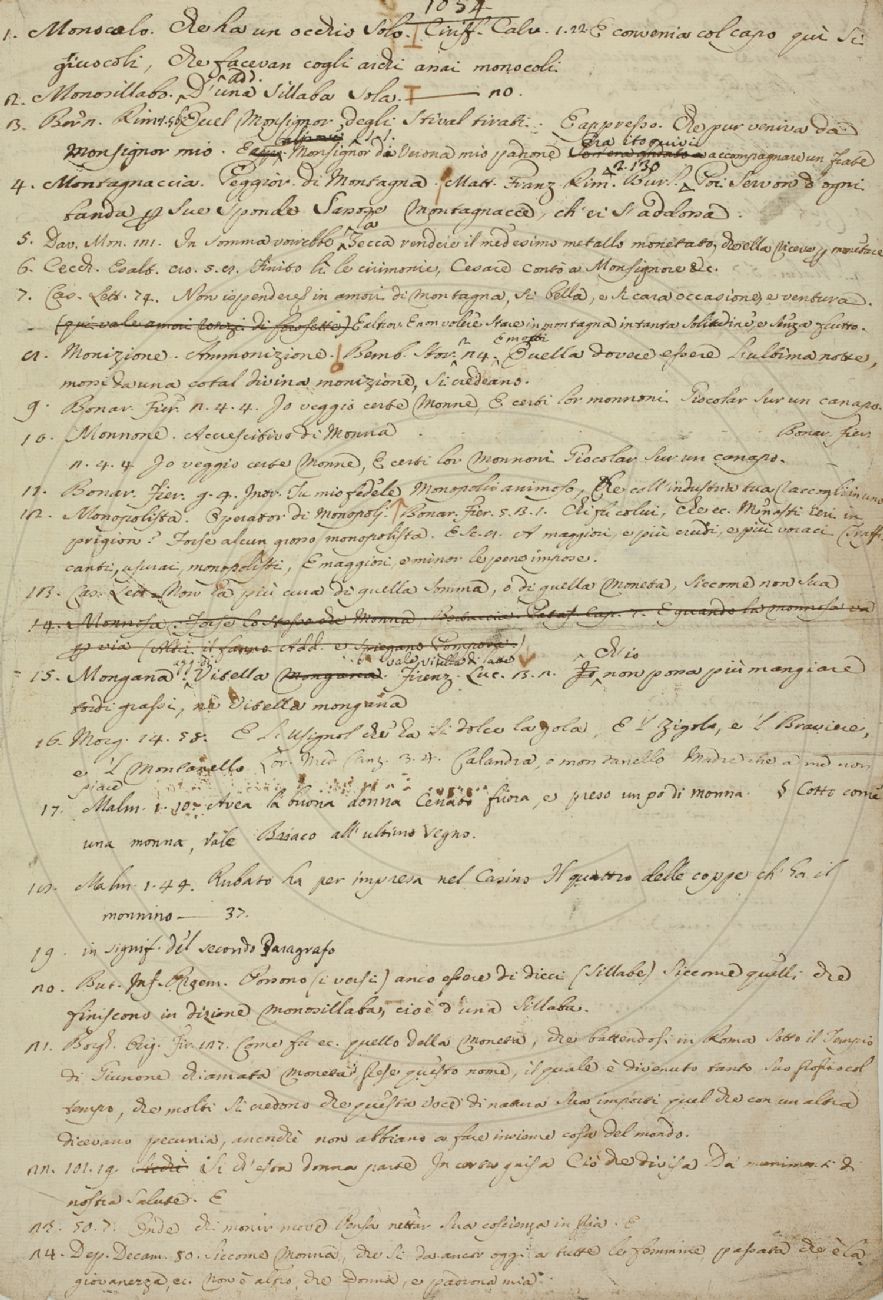 1034
1. Monocolo. Che ha un occhio solo. Ciriff. Calv. 1. 22. E convenia col capo qui si
giuocoli, che facevan cogli archi assai monocoli
2. Monosillabo. add. D'una sillaba sola. 20.
3. Bern. Rim. 1. 56. Quel Monsignor degli stival tirati. E appresso. Che pur veniva da
Monsignor mio. Monsignor di buona mio padrone Era ito quivi accompagnare un frate
4. Montagnaccia. Peggior. di Montagna. Matt. Franz. Rim. Bur. 2. 130 Poi servon d'ogni
banda p sue sponde Sanoze Montagnacce, ch'ei s'addossa.
5. Dav. Mon. 111. In somma vorrebbe la Zecca rendere il medesimo metallo monetato, ch'ella riceve p monetare
6. Cecch. Esalt. cr. 5. 8. Finito hi le cirimonie, Cesare contò a Monsignore &c.
7. Cas. Lett. 74. Non ispenderesti in amori di montagna, sì bella, e sì cara occasione, e ventura.
(qui vale amori rozzi di forosette) E altrov. E a me volere stare in montagna in tanta solitudine, e senza frutto.
8. Monizione. Ammonizione. Bemb. Stor. 2. 24. E molti Quella dovere essere l'ultima notte,
mossi da una cotal divina monizione, si credeano.
9. Bonar. Fier. 2. 4. 4. Io veggio certe Monne, E certi lor monnoni Giocolar sur un canapo.
10. Monnone. Accrescitivo di Monna. Bonar. Fier.
2. 4. 4 Io veggio certe Monne, E certi lor Monnoni Giocolar sur un canapo.
11. Bonar. Fier. g. 4. Intr. Tu mio fedele Monopolio animoso, Che coll'industria tua raccogli in uno
12. Monopolista. Operator di Monopolj. Bonar. Fier. 5. 3. 1. Chi fu colui, che ec. Menasti ieri in
prigion? Forse alcun grosso monopolista. E sc. 8. A maggiori, e più crudi, e più voraci Traffi-
canti, usurai, monopolisti, E maggiori, e minor le pene impose.
13. Cas. Lett. Non ha più cura di quella somma, o di quella moneta, siccome non sua
14. Monnosa. Forse lo stesso che Monna. E quando la monnosa va
p via
15. Mongana agg. di Vitella vale vitella di latte Firenz. Luc. 3. 2. Ch'io non possa più mangiare
tordi grassi, nè Vitella mongana
16. Morg. 14. 58. E l'Usignol che ha sì dolce la gola, E 'l Zigolo, e 'l Bravieve,
e 'l Montanello Lor. Med. Canz. 3. 8. Calandra, o montanello Madre che a me non
piace
17. Malm. 1. 10. Avea la buona donna Cenato fuora, e preso un po di monna. § Cotto come
una monna, vale Briaco all'ultimo segno.
18. Malm. 1. 44. Rubato ha per impresa nel Casino Il quattro delle coppe ch'ha il
monnino 37.
19. in signif. del secondo Paragrafo
20. But. Inf. Proem. Possono (i versi) anco essere di dieci (sillabe) siccome quelli che
finiscono in dizione monosillaba, cioè d'una sillaba.
21. Borgh. Orig. Fir. 127. Come fu ec. quello della Moneta, che battendosi in Roma sotto il Tempio
di Giunone chiamata Moneta prese questo nome, il quale è divenuto tanto suo proprio col
tempo, che molti si credono che questa voce di natura sua importi quel che con un altra
dicevano pecunia, ancorchè non abbiano a fare insieme cosa del mondo.
22. 101. 19. Si ch'essa donna parte In corta guisa Ciò che divisa Da munimenti di
nostra salute. E
23. 50. 7. Onde chi morir move Pensa nettar sua coscienza in pria. E
24. Dep. Decam. 80. Siccome Monna, che si da ancor oggi a tutte le femmine, passata che è la
giovanezza, ec. Non è altro, che donna, e padrona mia.